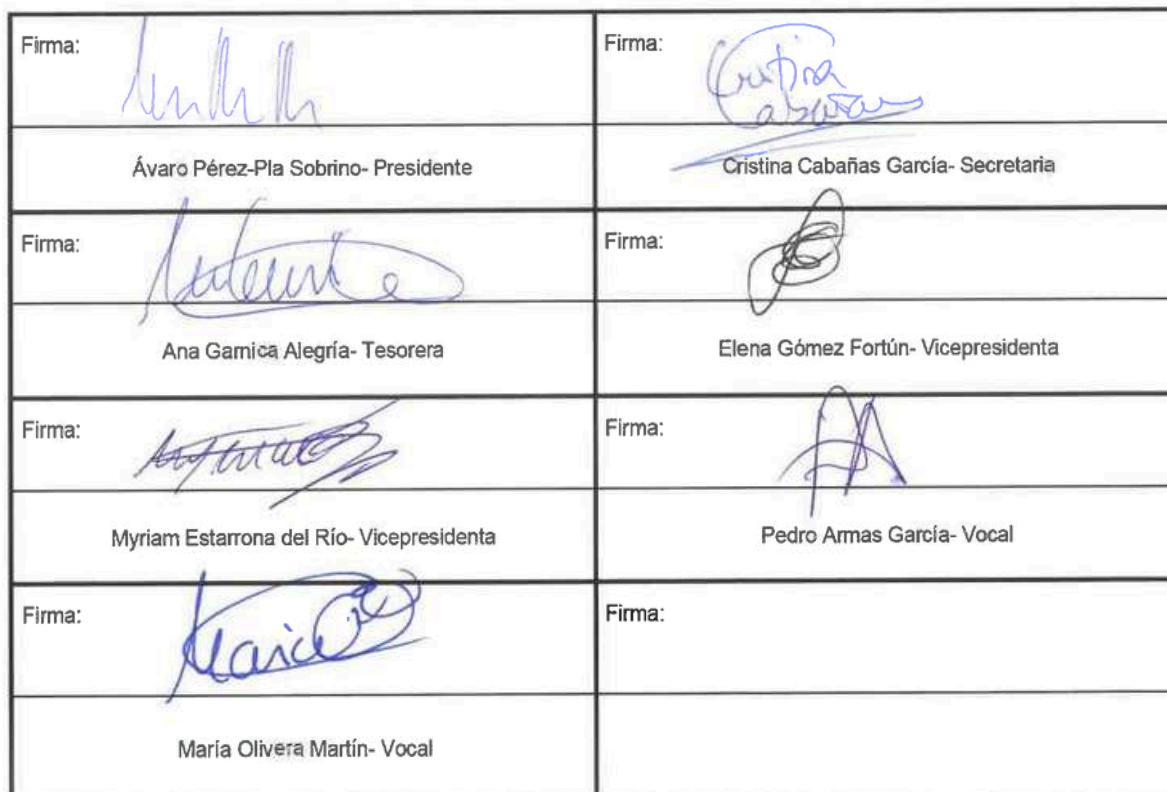 Firma:
Firma:
Cristina
Cabañas
Ávaro Pérez-Pla Sobrino- Presidente
Cristina Cabañas García- Secretaria
Firma:
Firma:
Ana Garnica Alegría- Tesorera
Elena Gómez Fortún- Vicepresidenta
Firma:
Firma:
Myriam Estarrona del Río- Vicepresidenta
Pedro Armas García- Vocal
Firma:
María
Firma:
María Olivera Martín- Vocal